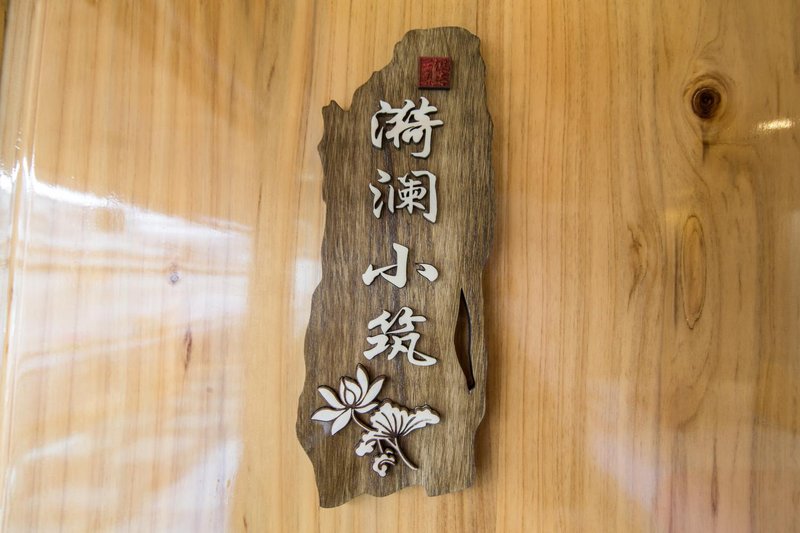 漪澜小筑